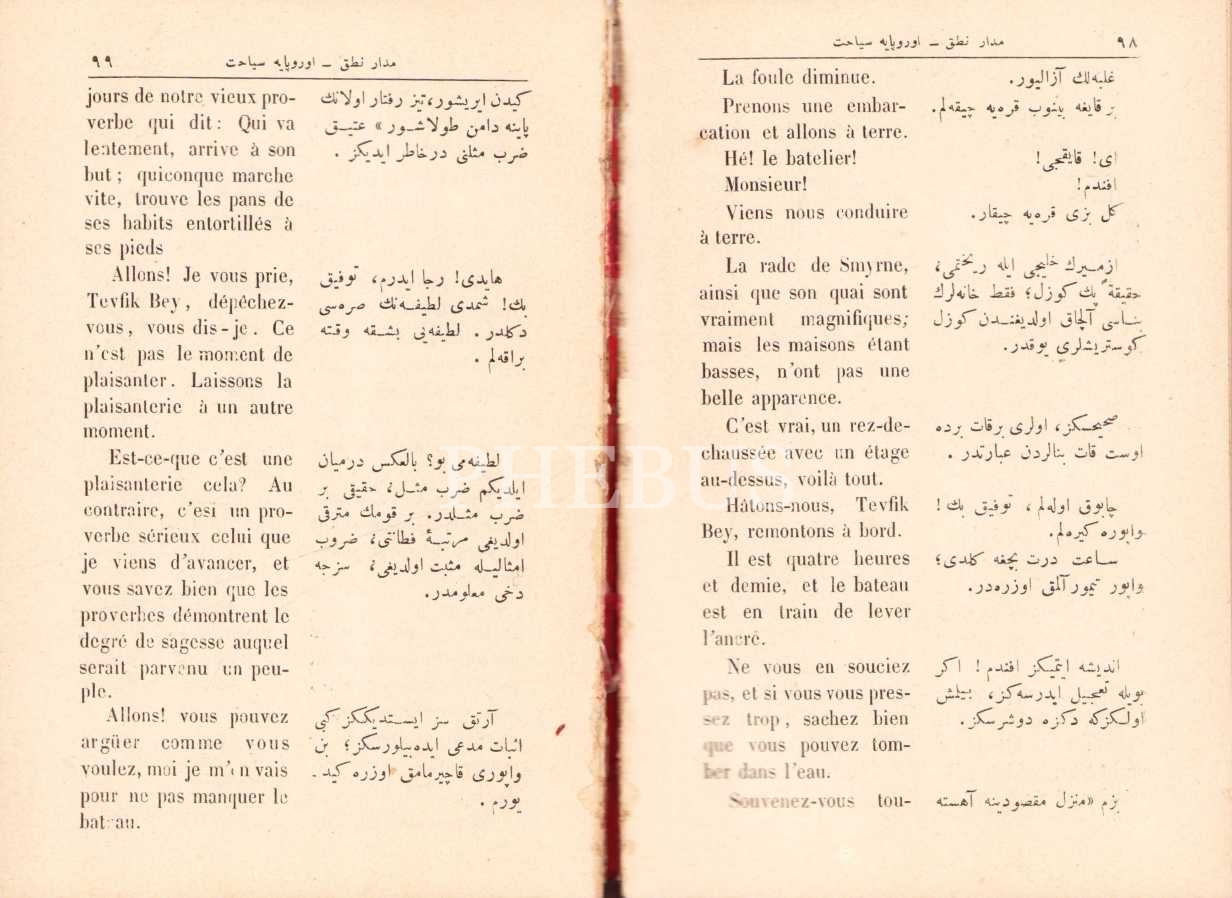 ٩٨
مدار نطق ــ اوروپایه سیاحت
La foule diminue.
Prenons une embar-
cation et allons à terre.
Hé! le batelier!
Monsieur!
Viens nous conduire
à terre.
La rade de Smyrne,
ainsi que son quai sont
vraiment magnifiques;
mais les maisons étant
basses, n'ont pas une
belle apparence.
C'est vrai, un rez-de-
chaussée avec un étage
au-dessus, voilà tout.
Hâtons-nous, Tevfik
Bey, remontons à bord.
Il est quatre heures
et demie, et le bateau
est en train de lever
l'ancre.
Ne vous en souciez
pas, et si vous vous pres-
sez trop, sachez bien
que vous pouvez tom-
ber dans l'eau.
Souvenez-vous tou-
غلبه‌لك آزالیور.
بر قایغه بینوب قره‌یه چیقه‌لم.
ای! قایقجی!
افندم!
كل بزی قره‌یه چیقار.
ازمیرك خلیجی ایله ریختمی،
حقیقةً پك كوزل؛ فقط خانه‌لرك
بناسی آلچاق اولدیغندن كوزل
كوستریشلری یوقدر.
صحیحسكز، اولری برقات یرده
اوست قات بنالردن عبارتدر.
چابوق اوله‌لم، توفیق بك!
واپوره كیره‌لم.
ساعت درت بچغه كلدی؛
واپور تیمور آلمق اوزره‌در.
اندیشه ایتمیكز افندم! اكر
بویله تعجیل ایدرسه‌كز، بیلمش
اولكزكه دكزه دوشرسكز.
بزم «منزل مقصودینه آهسته
٩٩
مدار نطق ــ اوروپایه سیاحت
jours de notre vieux pro-
verbe qui dit: Qui va
lentement, arrive à son
but; quiconque marche
vite, trouve les pans de
ses habits entortillés à
ses pieds
Allons! Je vous prie,
Tevfik Bey, dépêchez-
vous, vous dis-je. Ce
n'est pas le moment de
plaisanter. Laissons la
plaisanterie à un autre
moment.
Est-ce-que c'est une
plaisanterie cela? Au
contraire, c'esi un pro-
verbe sérieux celui que
je viens d'avancer, et
vous savez bien que les
proverbes démontrent le
degré de sagesse auquel
serait parvenu un peu-
ple.
Allons! vous pouvez
argüer comme vous
voulez, moi je m'en vais
pour ne pas manquer le
bateau.
كیدن ایریشور، تیز رفتار اولانك
پاینه دامن طولاشور» عتیق
ضرب مثلنی درخاطر ایدیكز.
هایدی! رجا ایدرم، توفیق
بك! شمدی لطیفه‌نك صره‌سی
دكلدر. لطیفه‌یی بشقه وقته
براقه‌لم.
لطیفه‌می بو؟ بالعكس درمیان
ایلدیكم ضرب مثل، حقیقی بر
ضرب مثلدر. بر قومك مترقی
اولدیغی مرتبهٔ فطانتی، ضروب
امثالیله مثبت اولدیغی، سزجه
دخی معلومدر.
آرتق سز ایستدیككز كبی
اثبات مدعی ایده‌بیلورسكز؛ بن
واپوری قاچیرمامق اوزره كید-
یورم.
PHEBUS